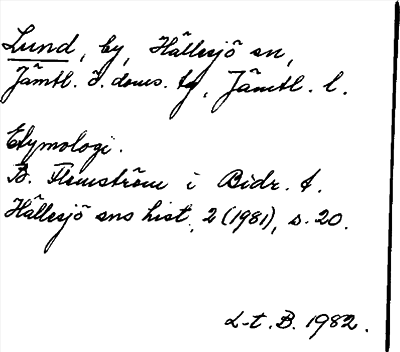 Lund, by, Hällesjö sn,
Jämtl. Ö. doms. tg, Jämtl. l.
Etymologi.
B. Flemström i Bidr. t.
Hällesjö sns hist. 2 (1981), s. 20.
L-t. B. 1982.